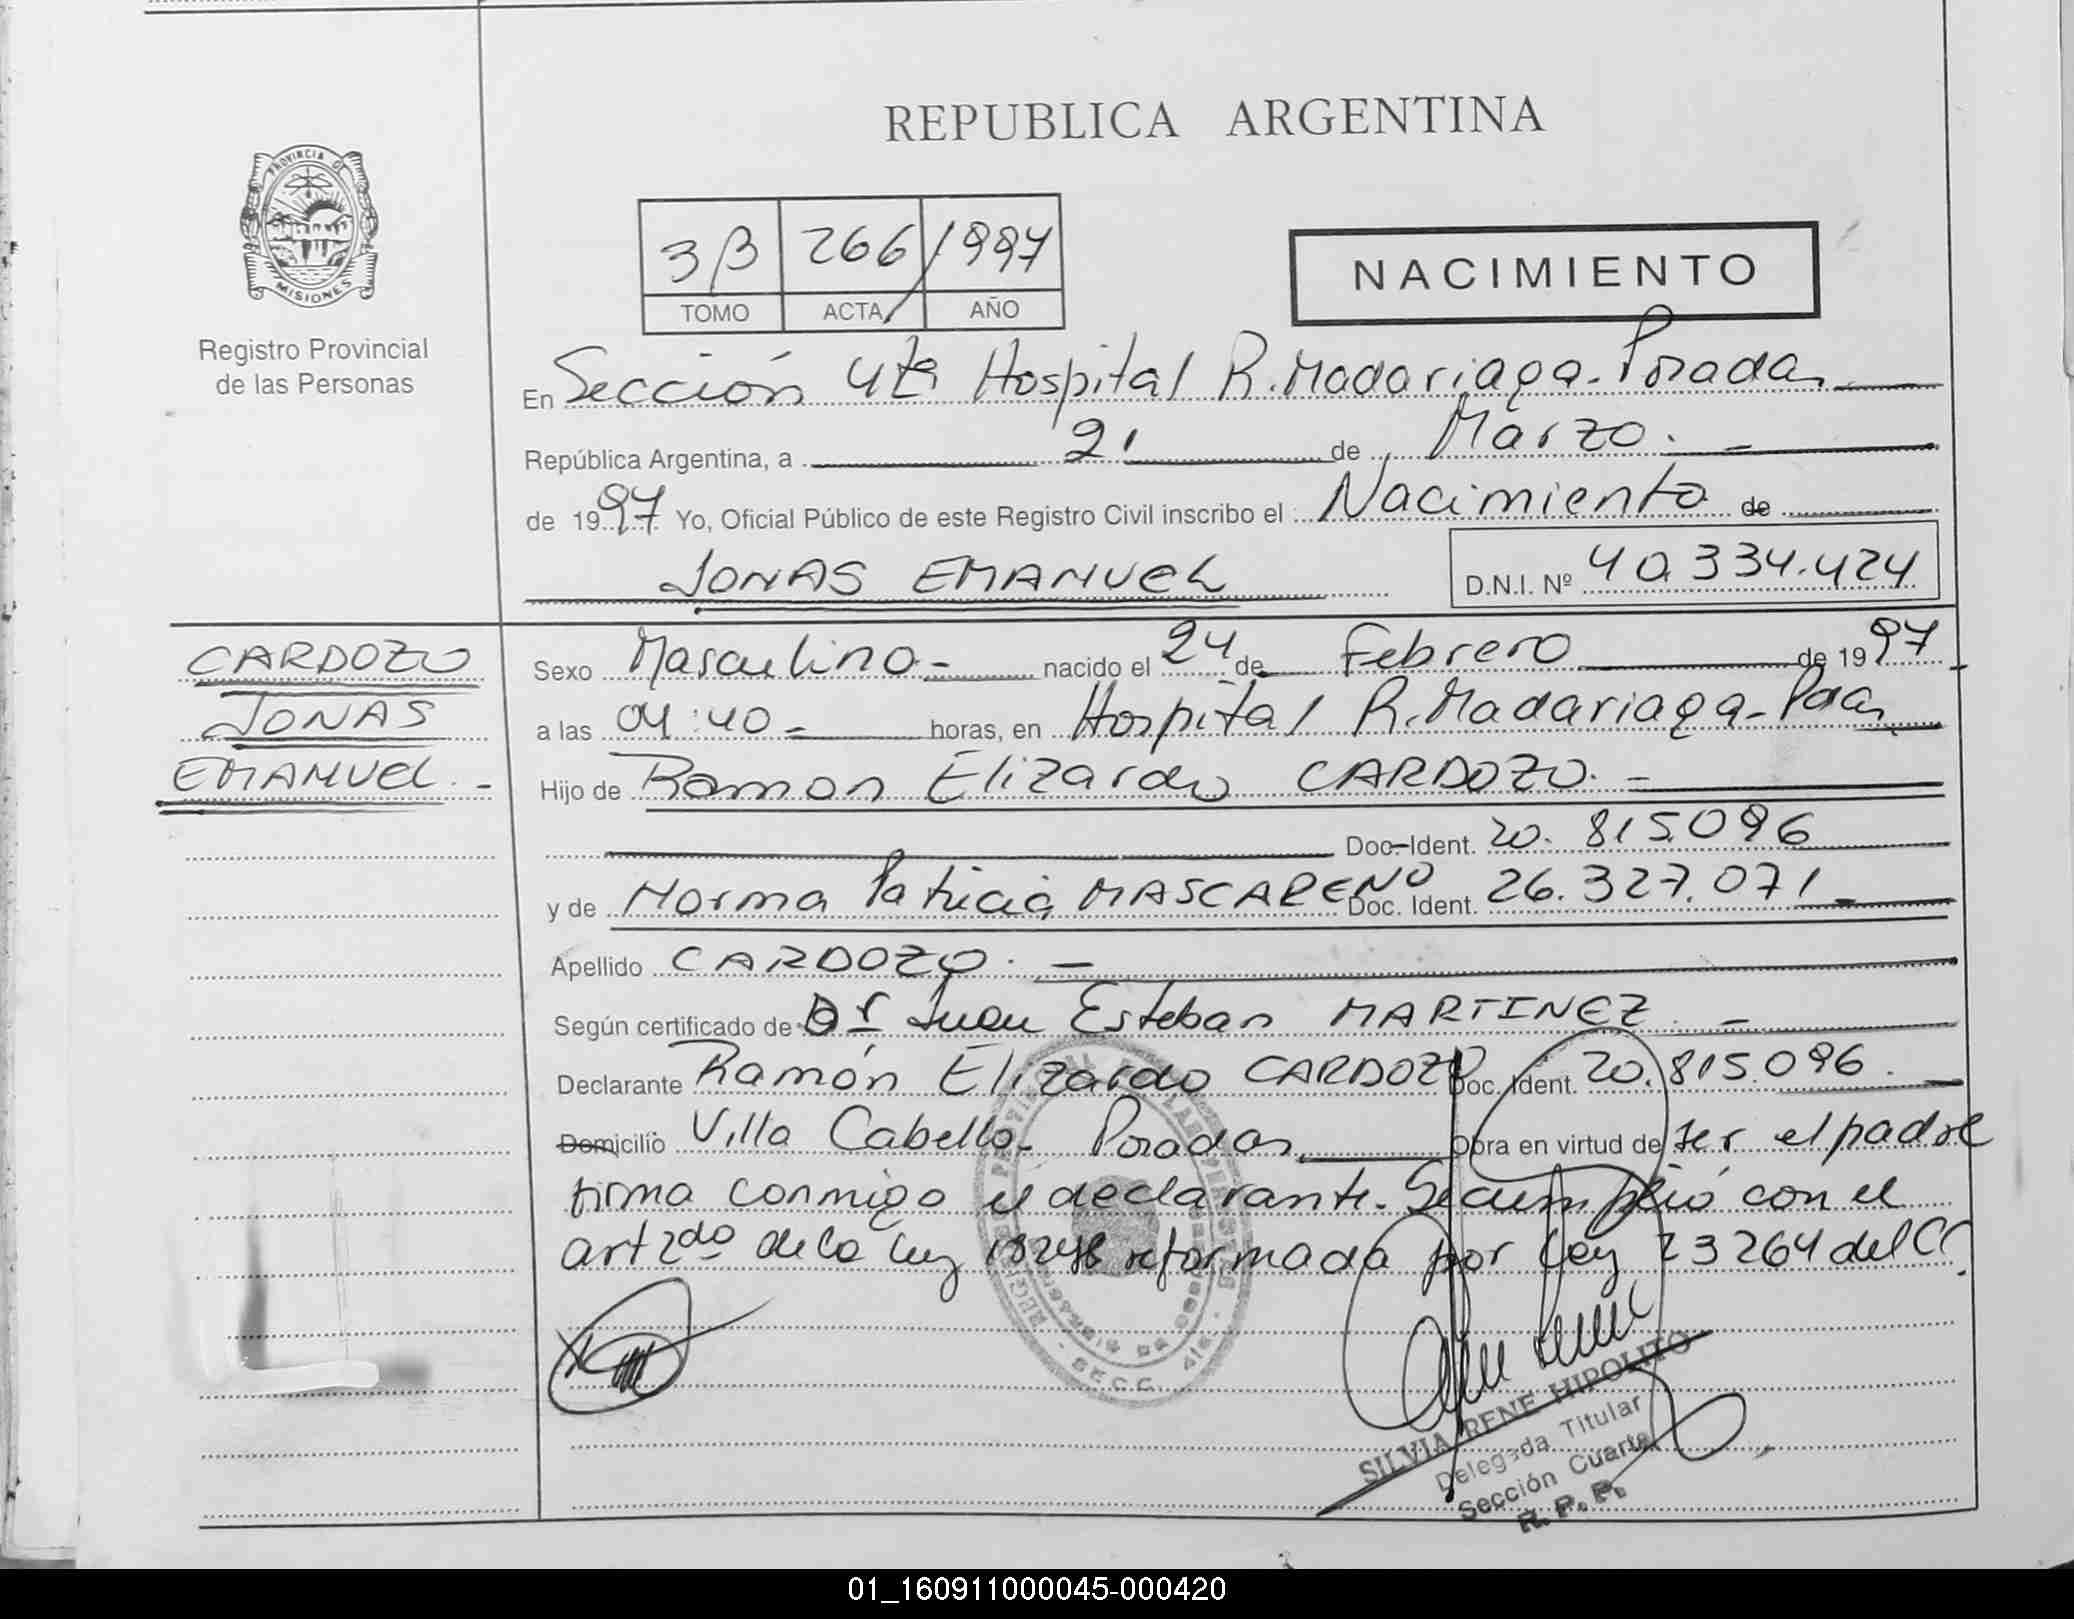 REPUBLICA ARGENTINA
PROVINCIA DE
MISIONES
Registro Provincial
de las Personas
3B 266/1997
TOMO ACTA AÑO
NACIMIENTO
En Sección 4ta Hospital R. Madariaga - Posadas
República Argentina, a 21 de Marzo. -
de 1997 Yo, Oficial Público de este Registro Civil inscribo el: Nacimiento de
JONAS EMANUEL
D.N.I. Nº 40.334.424
CARDOZO
JONAS
EMANUEL. -
Sexo Masculino - nacido el 24 de Febrero de 1997
a las 04:40 - horas, en Hospital R. Madariaga - Pdas
Hijo de Ramon Elizardo CARDOZO. -
Doc-Ident. 20.815.096
y de Norma Patricia MASCAREÑO Doc. Ident. 26.327.071 -
Apellido CARDOZO. -
Según certificado de Dr Juan Esteban MARTINEZ. -
Declarante Ramón Elizardo CARDOZO Doc. Ident. 20.815.096. -
Domicilio Villa Cabello - Posadas Obra en virtud de ser el padre
firma conmigo el declarante. Se cumplió con el
art 2do de la Ley 18248 reformada por Ley 23264 del CC.
SILVIA RENE HIPOLITO
Delegada Titular
Sección Cuarta
R. P. P.
01_160911000045-000420